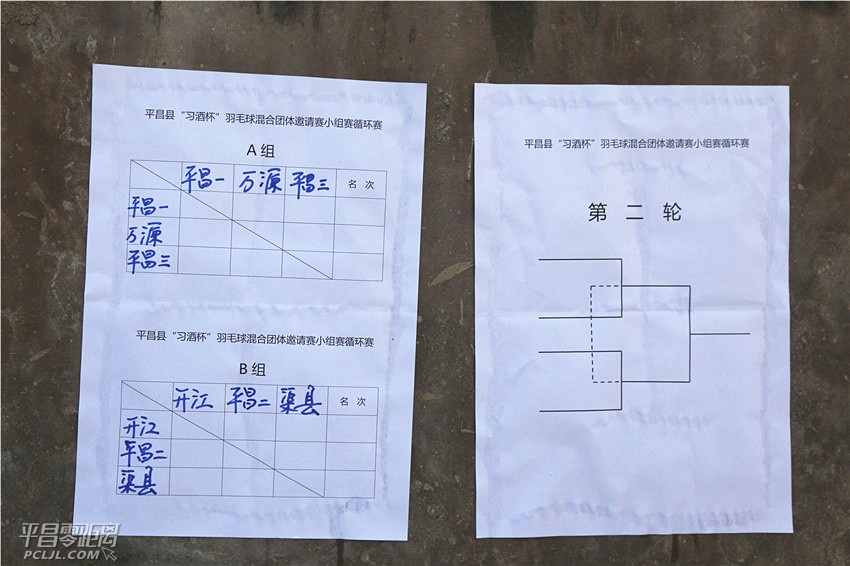 平昌县“习酒杯”羽毛球混合团体邀请赛小组赛循环赛
A 组
平昌一 万源 平昌三 名 次
平昌一
万源
平昌三
平昌县“习酒杯”羽毛球混合团体邀请赛小组赛循环赛
B 组
开江 平昌二 渠县 名 次
开江
平昌二
渠县
平昌县“习酒杯”羽毛球混合团体邀请赛小组赛循环赛
第 二 轮
平昌零距离
PCLJL.COM